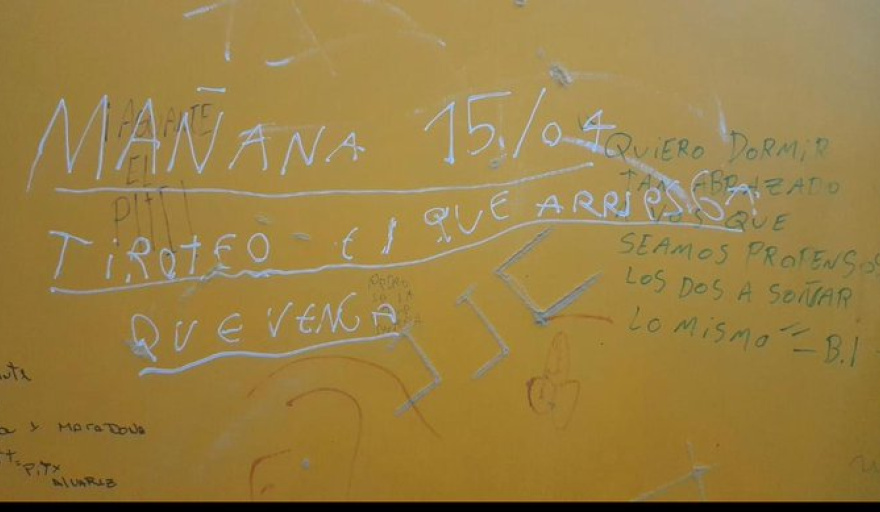 MAÑANA 15/04
TIROTEO El QUE ARRIESGA
QUE VENGA
AGUANTE
EL
PITI
QUIERO DORMIR
TAN ABRAZADO
A VOS QUE
SEAMOS PROPENSOS
LOS DOS A SOÑAR
LO MISMO" - B.I
Y MARADONA
PITY
ALVAREZ